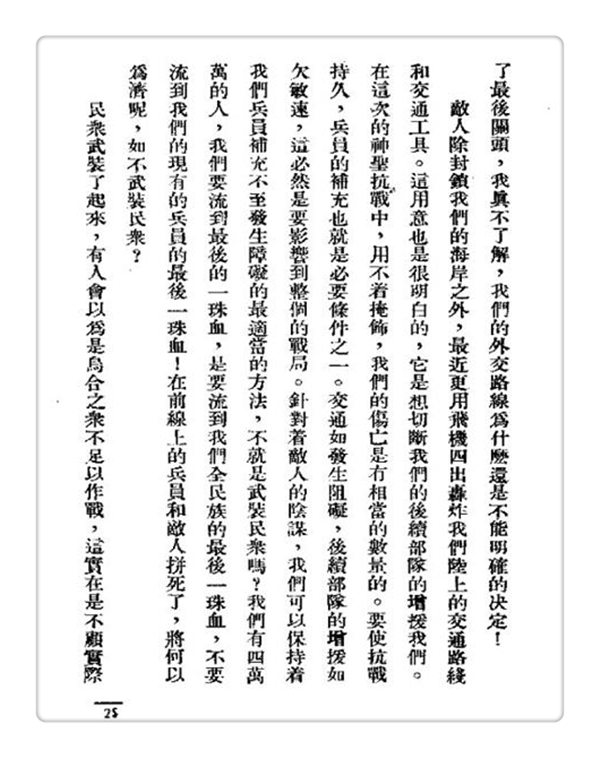 了最後關頭，我眞不了解，我們的外交路線爲什麼還是不能明確的决定！
敵人除封鎖我們的海岸之外，最近更用飛機四出轟炸我們陸上的交通路綫
和交通工具。這用意也是很明白的，它是想切斷我們的後續部隊的增援我們。
在這次的神聖抗戰中，用不着掩飾，我們的傷亡是有相當的數量的。要使抗戰
持久，兵員的補充也就是必要條件之一。交通如發生阻礙，後續部隊的增援如
欠敏速，這必然是要影響到整個的戰局。針對着敵人的陰謀，我們可以保持着
我們兵員補充不至發生障礙的最適當的方法，不就是武裝民衆嗎？我們有四萬
萬的人，我們要流到最後的一珠血，是要流到我們全民族的最後一珠血，不要
流到我們的現有的兵員的最後一珠血！在前線上的兵員和敵人拼死了，將何以
爲濟呢，如不武裝民衆？
民衆武裝了起來，有人會以爲是烏合之衆不足以作戰，這實在是不顧實際
25